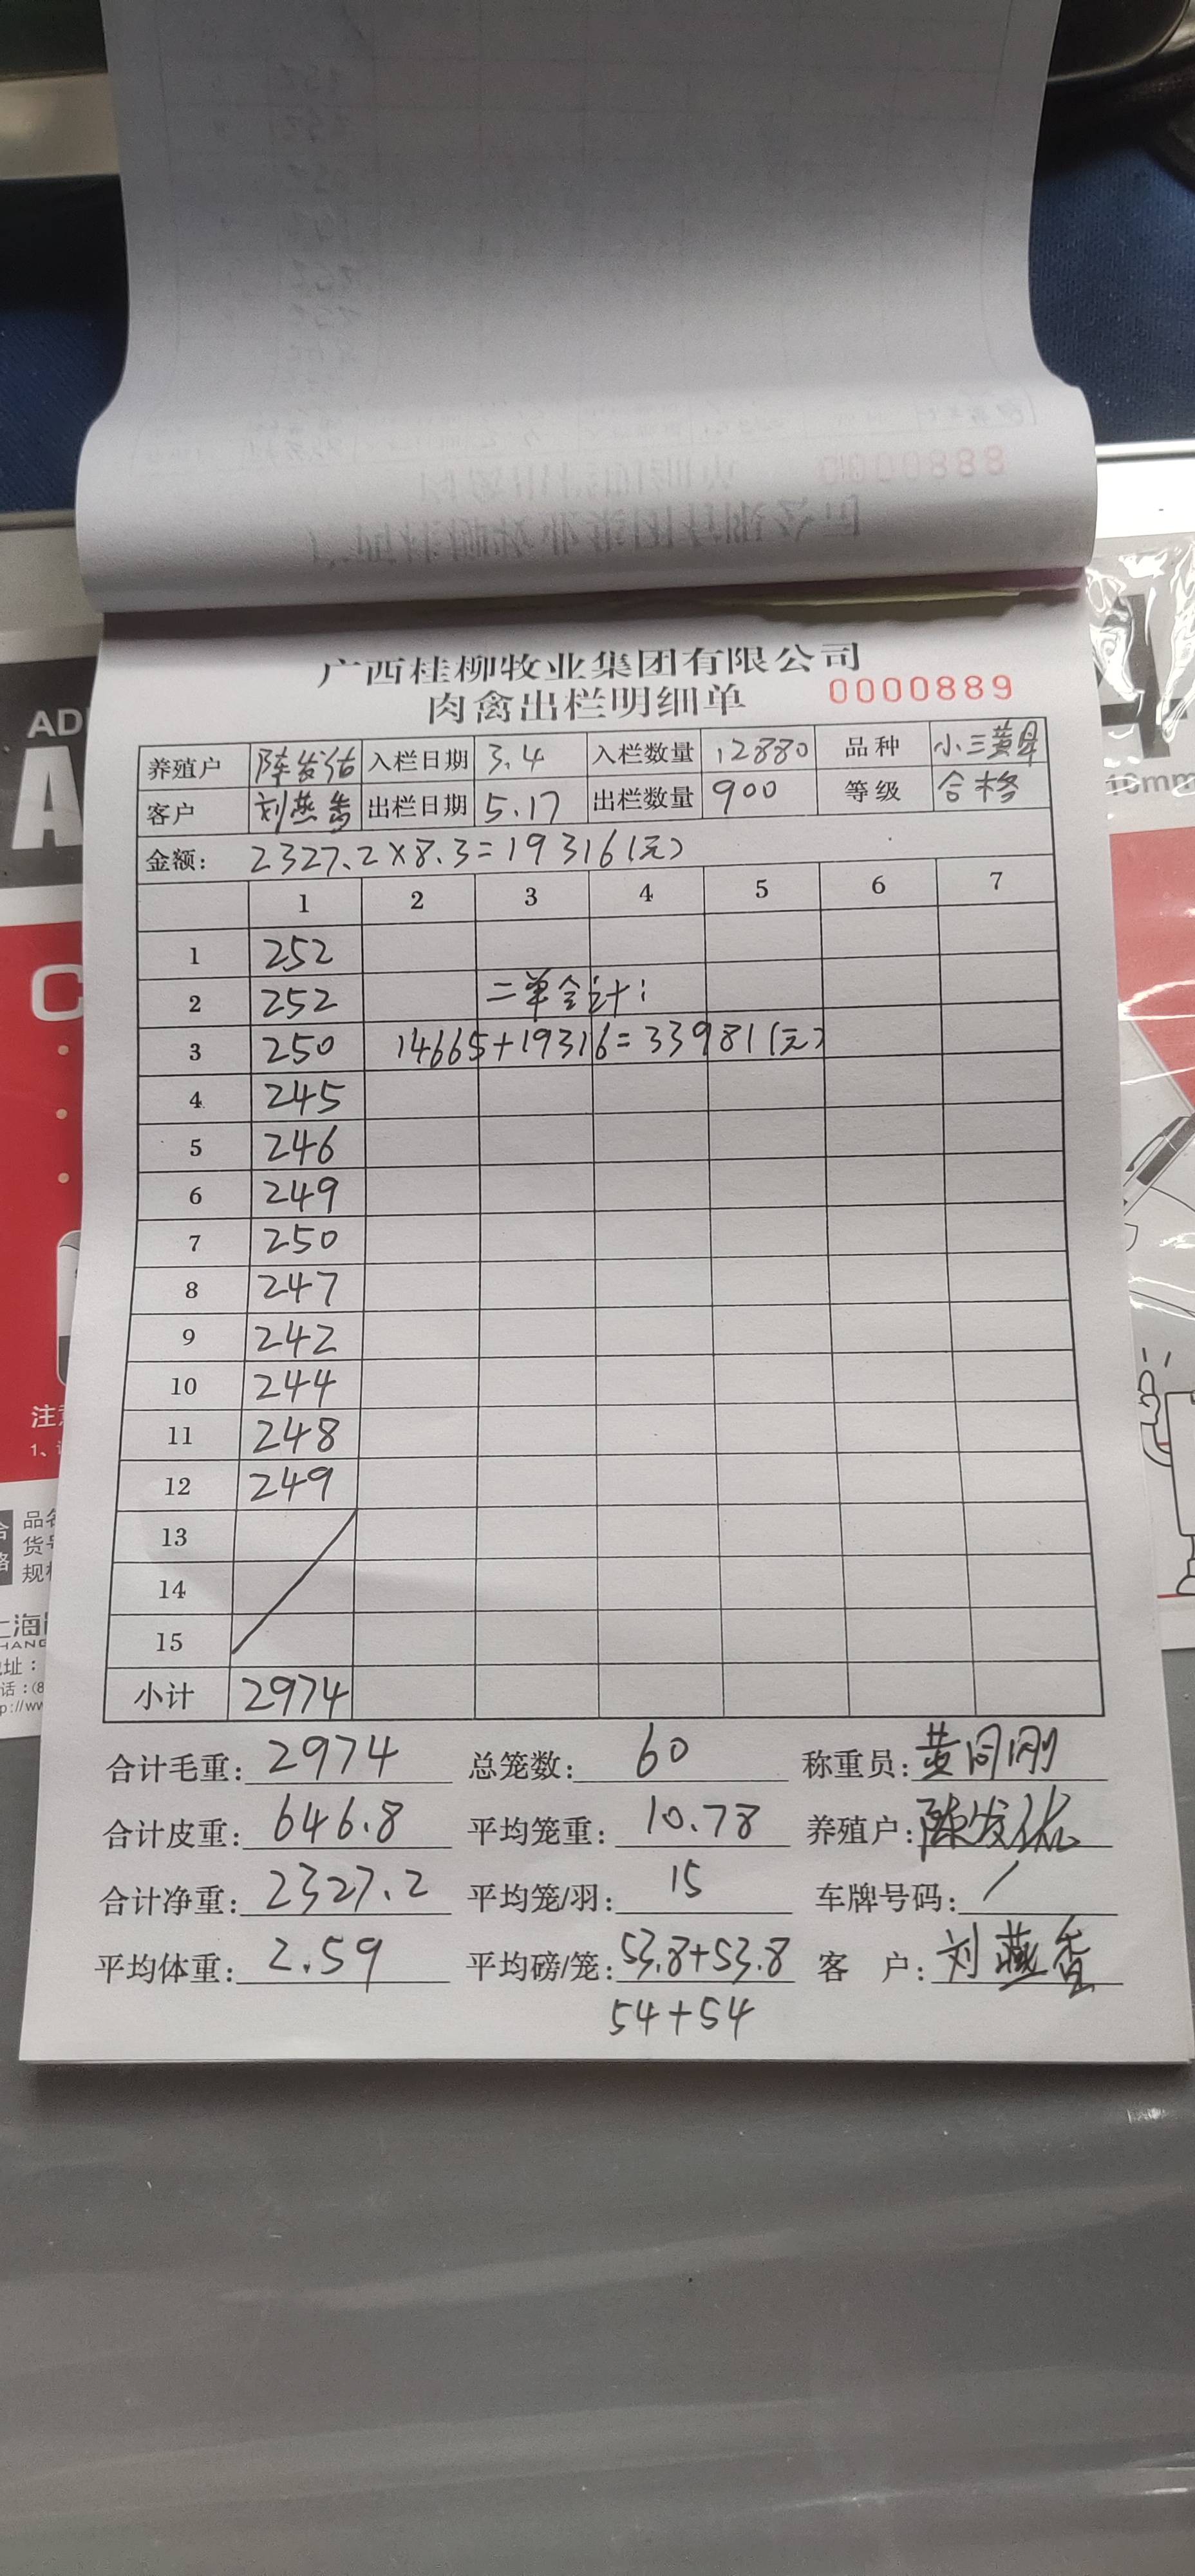 广西桂柳牧业集团有限公司
肉禽出栏明细单 0000889
养殖户 陈发佑 入栏日期 3.4 入栏数量 12880 品种 小三黄
客户 刘燕香 出栏日期 5.17 出栏数量 900 等级 合格
金额: 2327.2×8.3=19316(元)
1 2 3 4 5 6 7
1 252
2 252 二单合计:
3 250 14665+19316=33981(元)
4 245
5 246
6 249
7 250
8 247
9 242
10 244
11 248
12 249
13
14
15
小计 2974
合计毛重: 2974 总笼数: 60 称重员: 黄同刚
合计皮重: 646.8 平均笼重: 10.78 养殖户: 陈发佑
合计净重: 2327.2 平均笼/羽: 15 车牌号码: /
平均体重: 2.59 平均磅/笼: 53.8+53.8 客 户: 刘燕香
54+54
0000888
10mm
注
1、
品名
货号
规格
上海
地址: